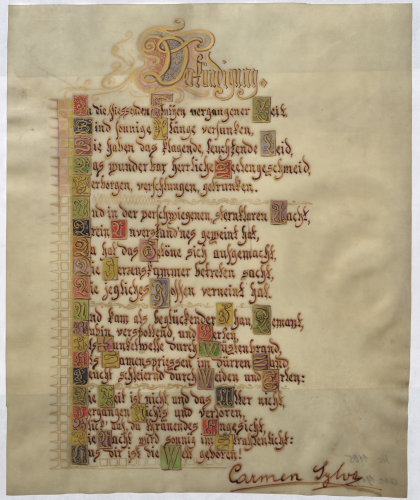 In die fliessenden Thränen vergangener Zeit,
Sind sonnige Klänge versunken,
Die haben das klagende, leuchtende Leid,
Das wunderbar herrliche Seelengeschmeid,
Verborgen, verschlungen, getrunken.
Und in der verschwiegenen, sternklaren Nacht,
Unverstand'nes geweint hat,
Da hat das Getöne sich aufgemacht,
Die Herzenskammer betreten sacht,
Die jegliches Hoffen verneint hat.
Und kam als beglückender Thau, Demant,
Rubin, versprühend, und Perlen,
Als Funkelwelle durch Wüstenbrand,
Als Samenspriessen im dürren Sand,
schleiernd durch Weiden und Erlen:
Die Zeit ist nicht und das Alter nicht
Vergangen Nichts und verloren,
du thränendes Angesicht,
Die Nacht wird sonnig im Strahlenlicht:
Aus dir ist die Welt geboren!
Carmen Sylva